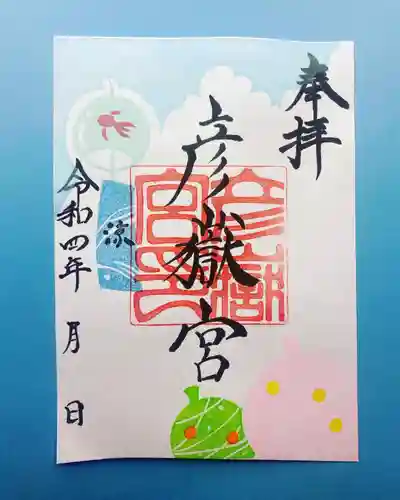 奉拝
彦嶽宮
彦嶽宮印
涼
令和四年 月 日